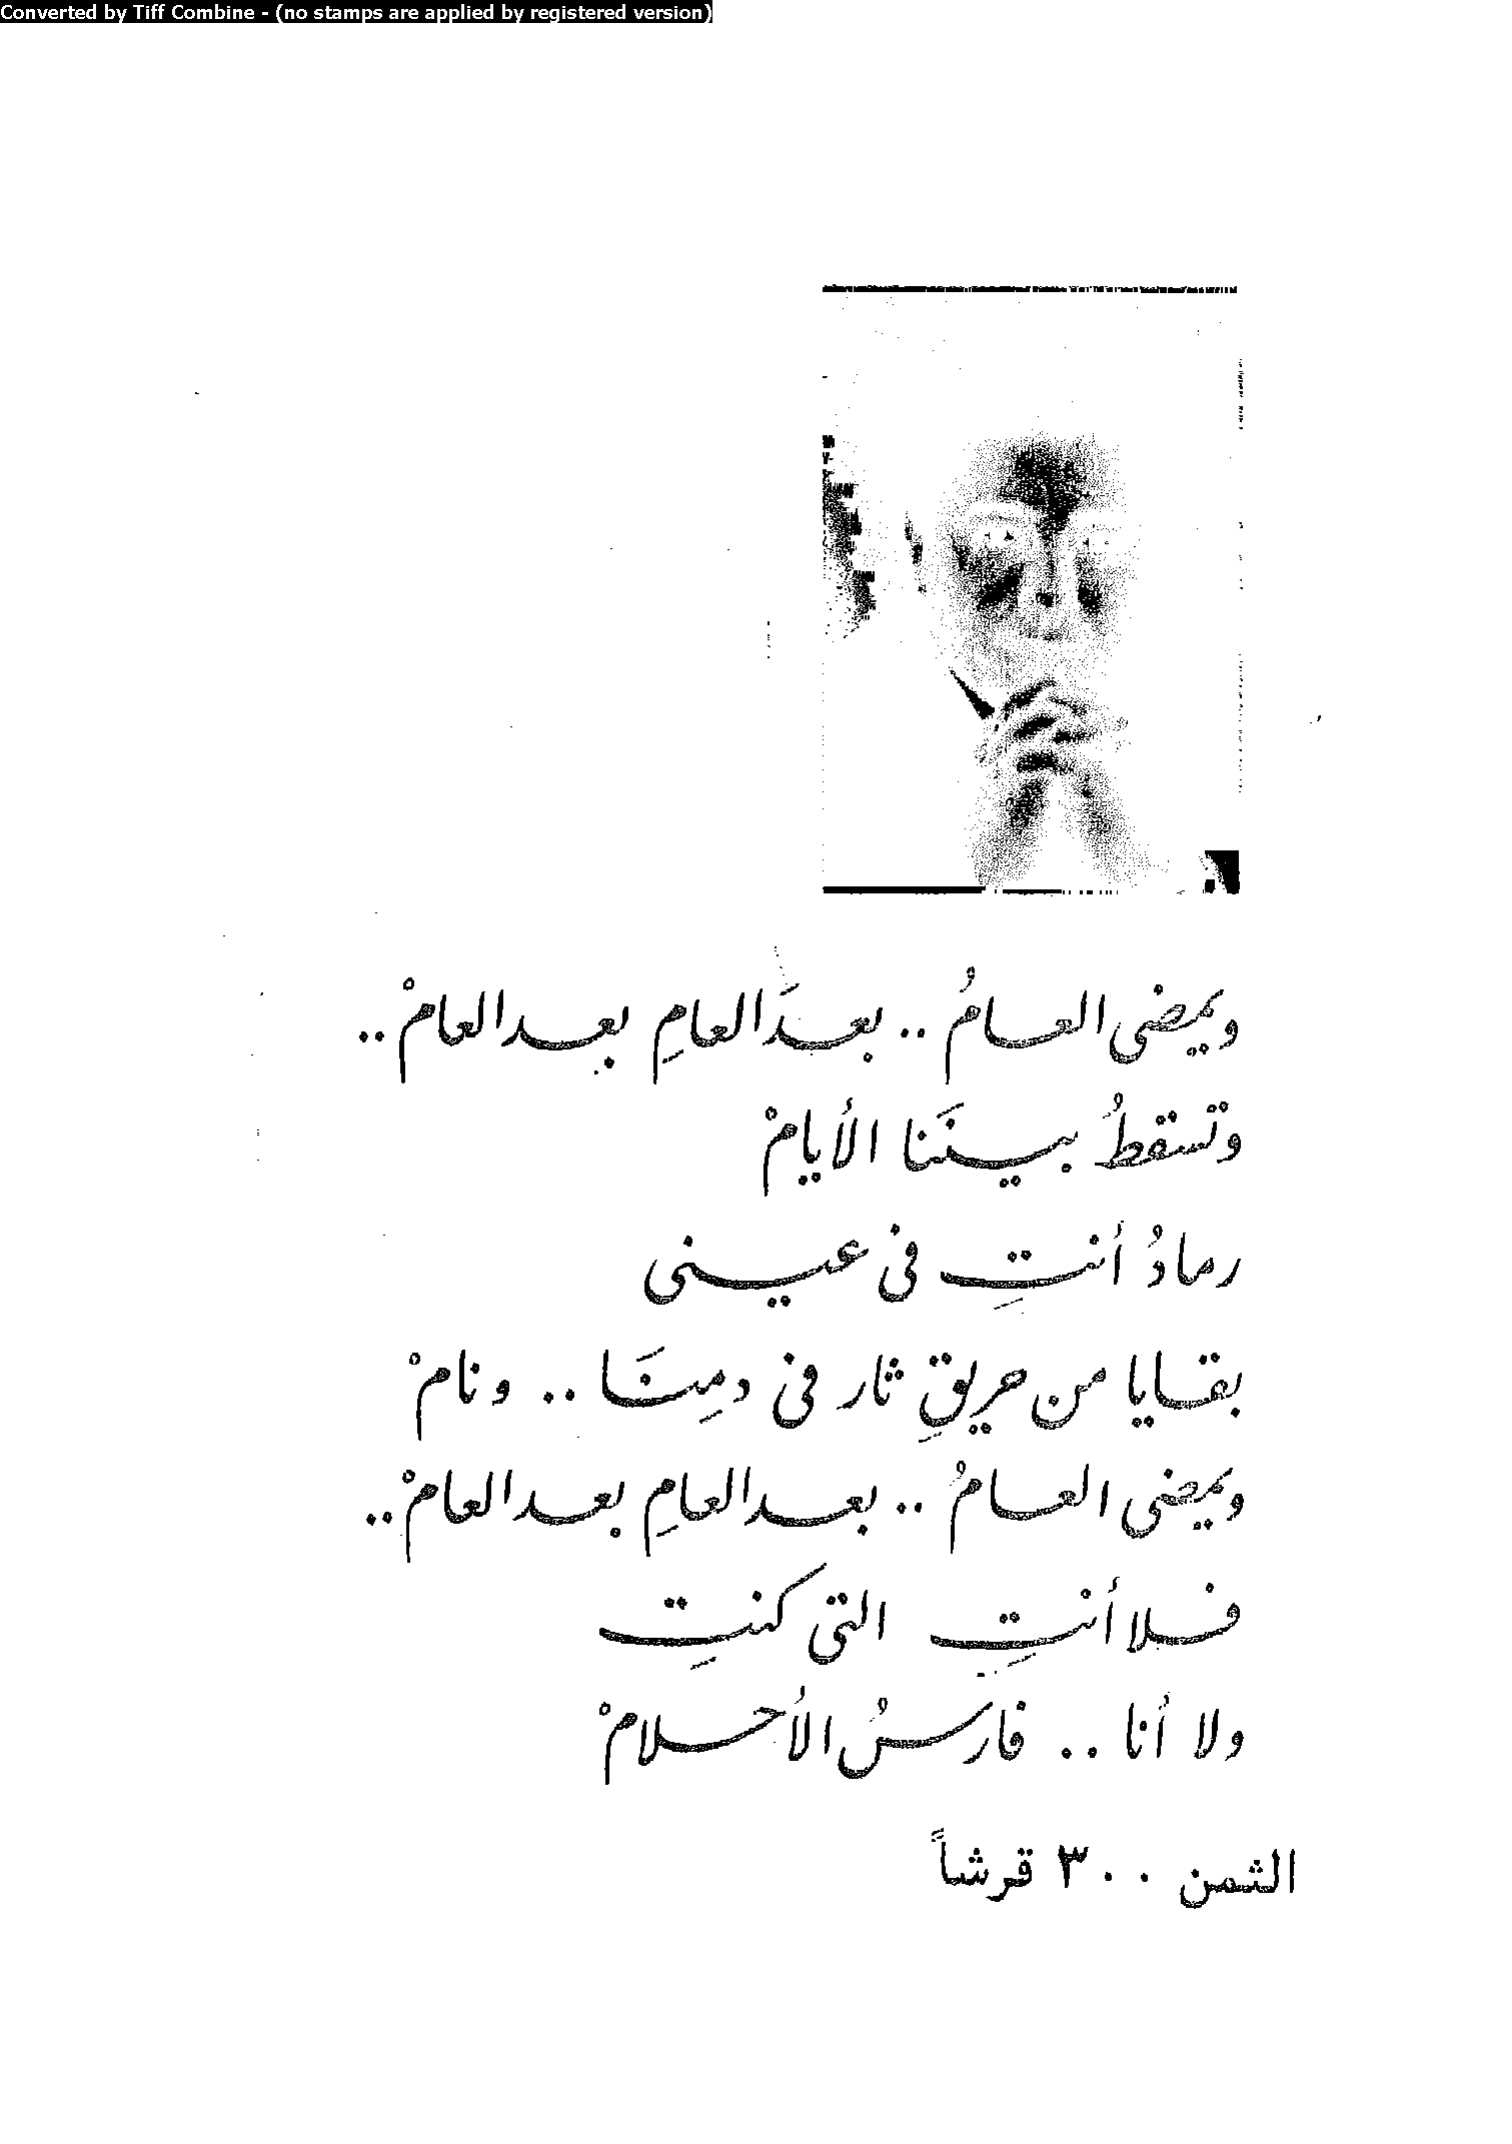 Converted by Tiff Combine - (no stamps are applied by registered version)
ويمضى العامُ .. بعدَ العامِ بعد العامْ ..
وتسقطُ بينَنا الأيامْ
رمادُ أنتِ فى عينى
بقايا من حريقِ ثار فى دمِنَا .. ونامْ
ويمضى العامُ .. بعد العامِ بعد العامْ ..
فلا أنتِ التى كنتِ
ولا أنا .. فارسُ الأحلامْ
الثمن ٣٠٠ قرشاً